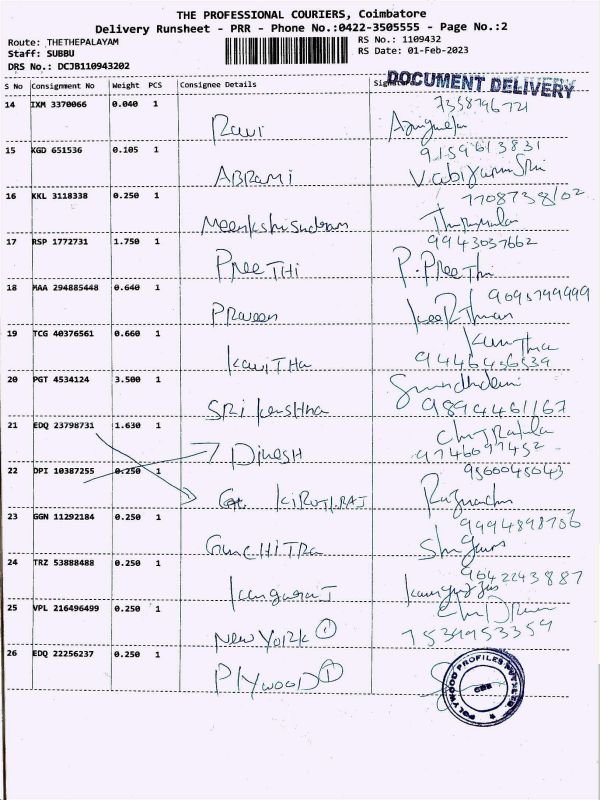 THE PROFESSIONAL COURIERS, Coimbatore
Delivery Runsheet - PRR - Phone No.:0422-3505555 - Page No.:2
Route: THETHEPALAYAM
Staff: SUBBU
DRS No.: DCJB110943202
RS No.: 1109432
RS Date: 01-Feb-2023
DOCUMENT DELIVERY
S No Consignment No Weight PCS Consignee Details
14 IXM 3370066 0.040 1
Ravi
7358796721
15 KGD 651536 0.105 1
ABRAMI
9159613831
16 KKL 3118338 0.250 1
Meenkshisudram
7708738102
17 RSP 1772731 1.750 1
PREETHI P.Preethi
9943037662
18 MAA 294885448 0.640 1
Praveen
9095799999
19 TCG 40376561 0.660 1
KaviTHa
9446456539
20 PGT 4534124 3.500 1
SRi Krishna
9894461167
21 EDQ 23798731 1.630 1
DinesH
9746097452
22 DPI 10387255 0.250 1
KIRUTI.RAJ
9566045043
23 GGN 11292184 0.250 1
9994898706
24 TRZ 53888488 0.250 1
Kanguraj
9642243887
25 VPL 216496499 0.250 1
New York 1
7539953359
26 EDQ 22256237 0.250 1
Plywood 1
PLYWOOD PROFILES PVT LTD
CBE